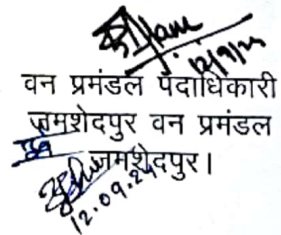 12/9/24
वन प्रमंडल पदाधिकारी
जमशेदपुर वन प्रमंडल
जमशेदपुर।
12.09.24